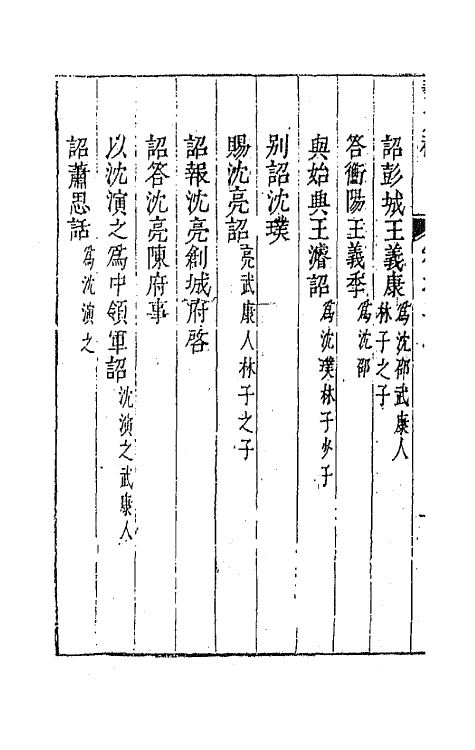 詔彭城王義康為沈邵武康人林子之子
答衡陽王義季為沈邵
與始興王濬詔為沈璞林子少子
別詔沈璞
賜沈亮詔亮武康人林子之子
詔報沈亮創城府啓
詔答沈亮陳府事
以沈演之為中領軍詔沈演之武康人
詔蕭思話為沈演之